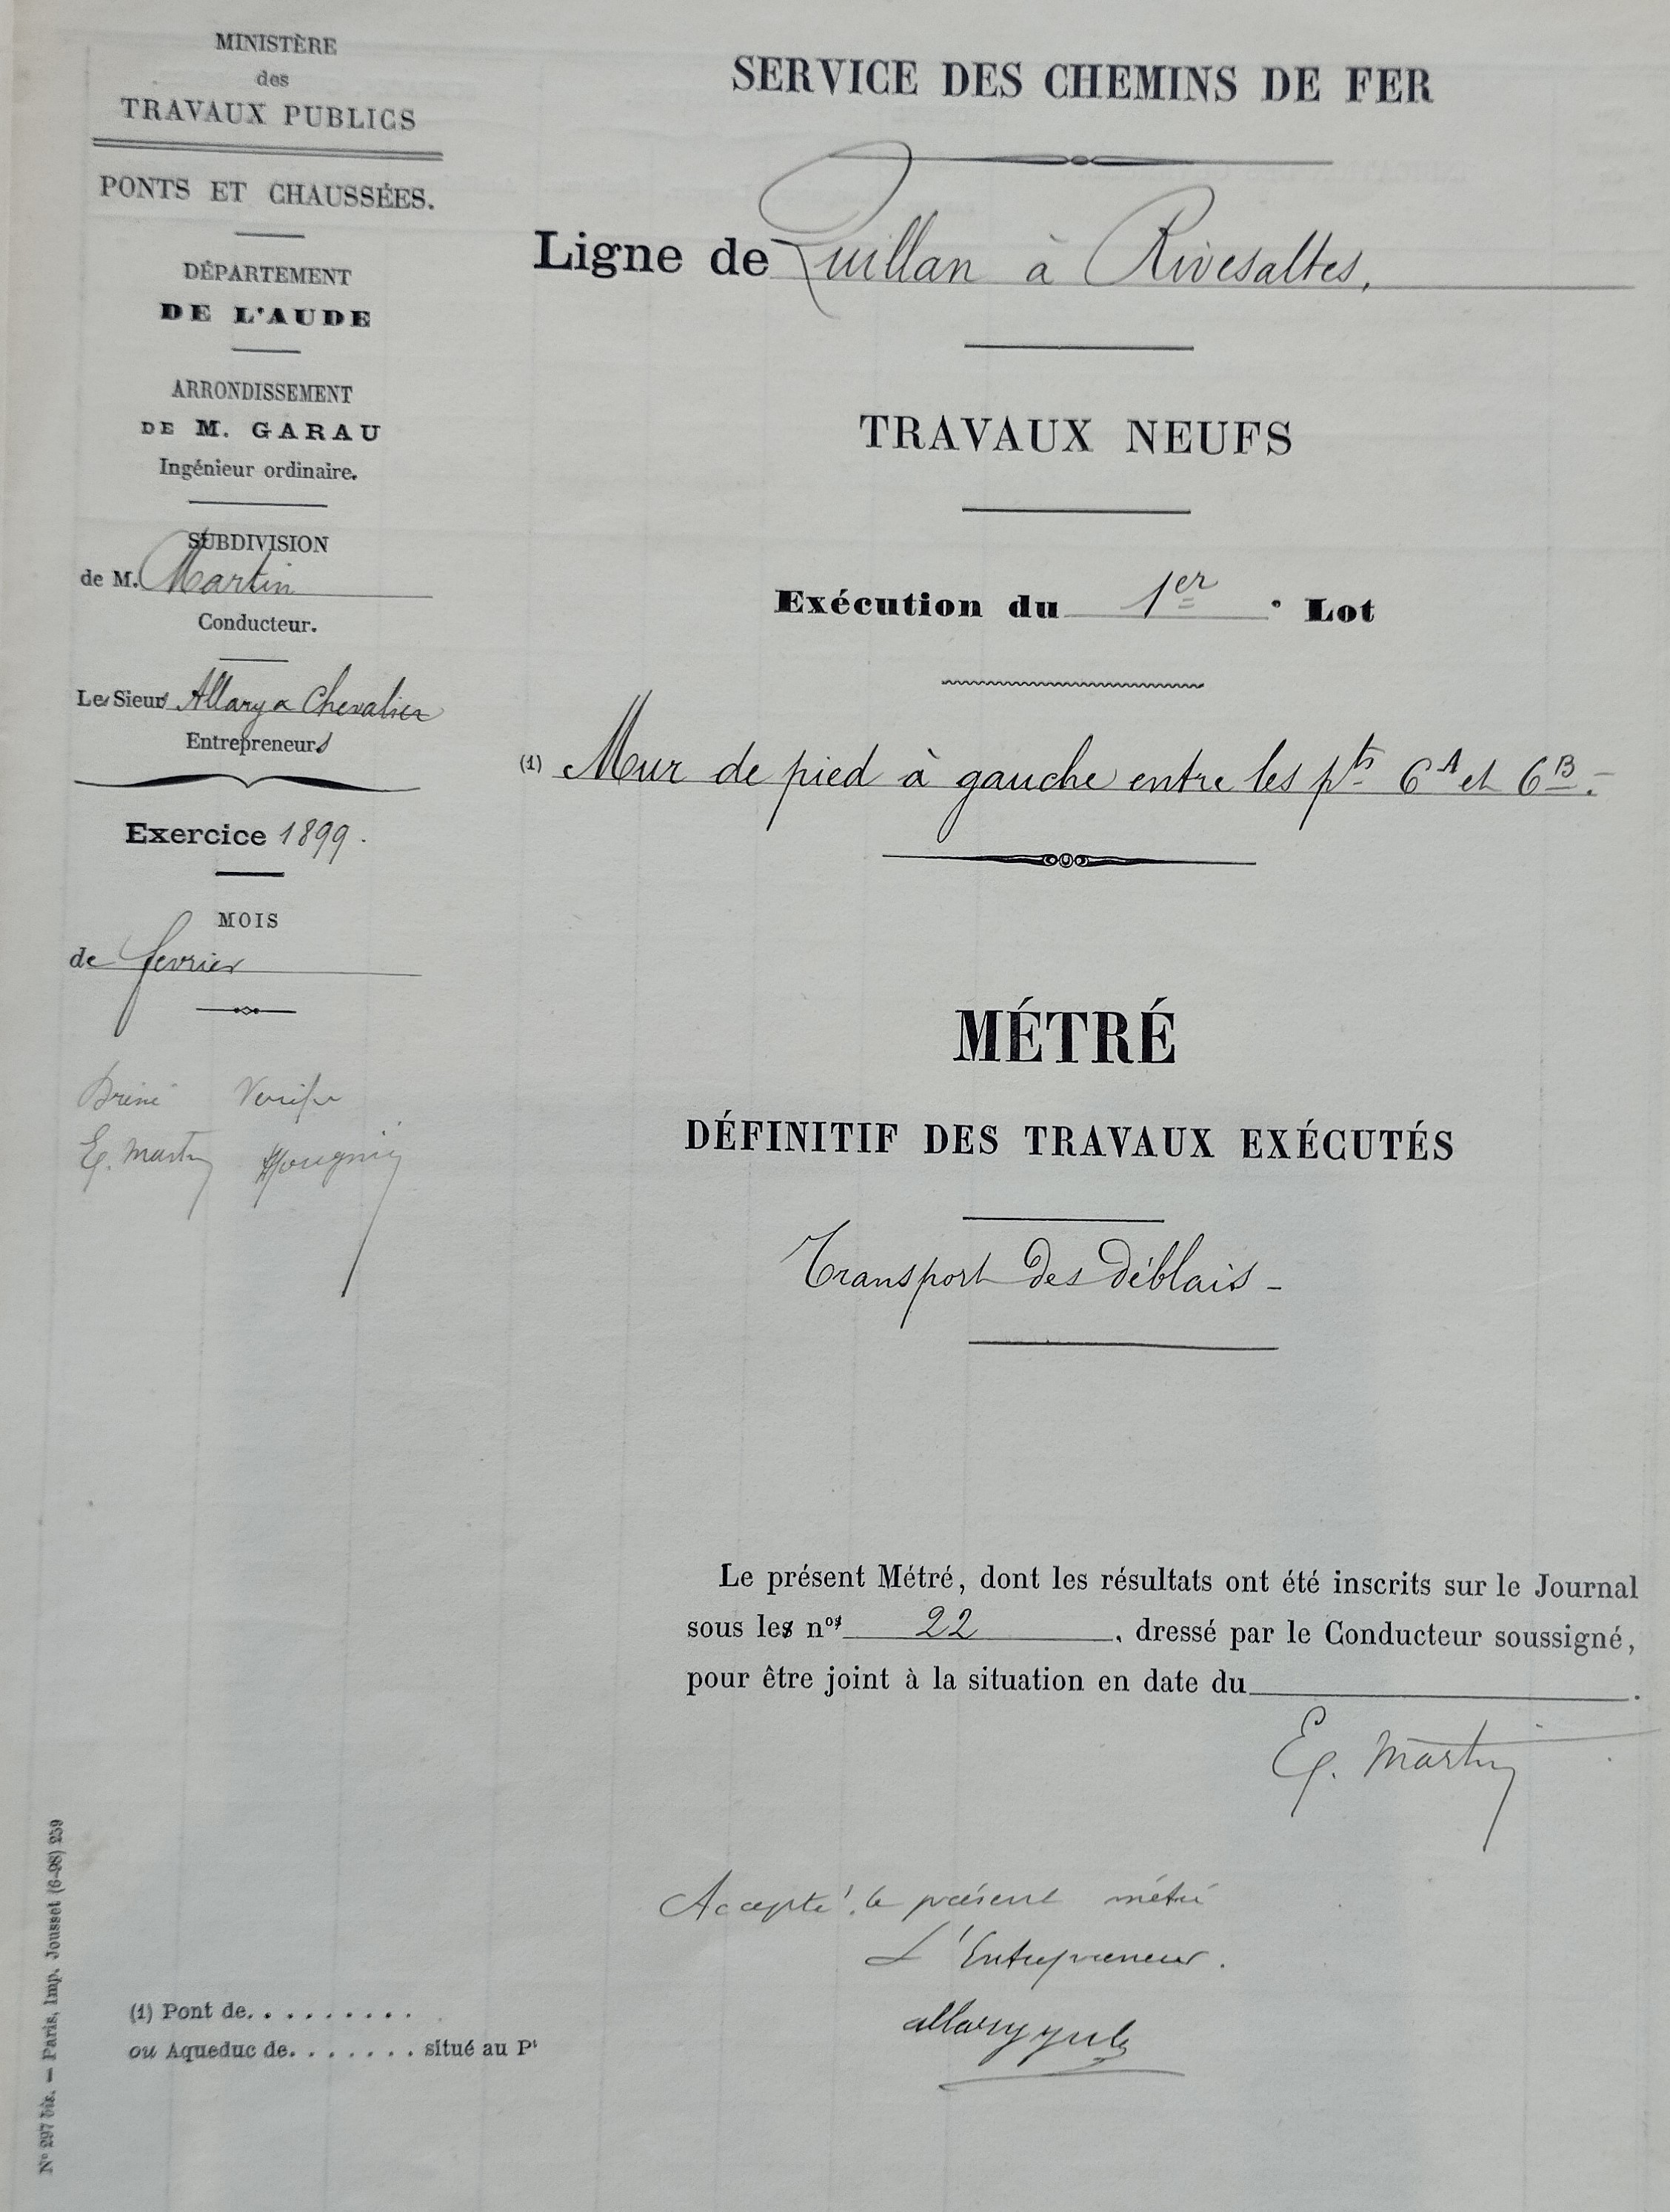 MINISTÈRE
des
TRAVAUX PUBLICS
PONTS ET CHAUSSÉES.
DÉPARTEMENT
DE L'AUDE
ARRONDISSEMENT
DE M. GARAU
Ingénieur ordinaire.
SUBDIVISION
de M. Martin
Conducteur.
Les Sieurs Allary & Chevalier
Entrepreneurs
Exercice 1899.
MOIS
de fevrier
E. Martin
SERVICE DES CHEMINS DE FER
Ligne de Quillan à Rivesaltes.
TRAVAUX NEUFS
Exécution du 1er Lot
(1) Mur de pied à gauche entre les pts 6A et 6B.
MÉTRÉ
DÉFINITIF DES TRAVAUX EXÉCUTÉS
Transport des déblais -
Le présent Métré, dont les résultats ont été inscrits sur le Journal
sous les nos 22, dressé par le Conducteur soussigné,
pour être joint à la situation en date du .
E. Martin
Accepté le présent métré
L'Entrepreneur.
allary
(1) Pont de. . . . . . . . .
ou Aqueduc de. . . . . . . situé au Pt
N° 297 bis. — Paris, Imp. Jousset (6-98) 259